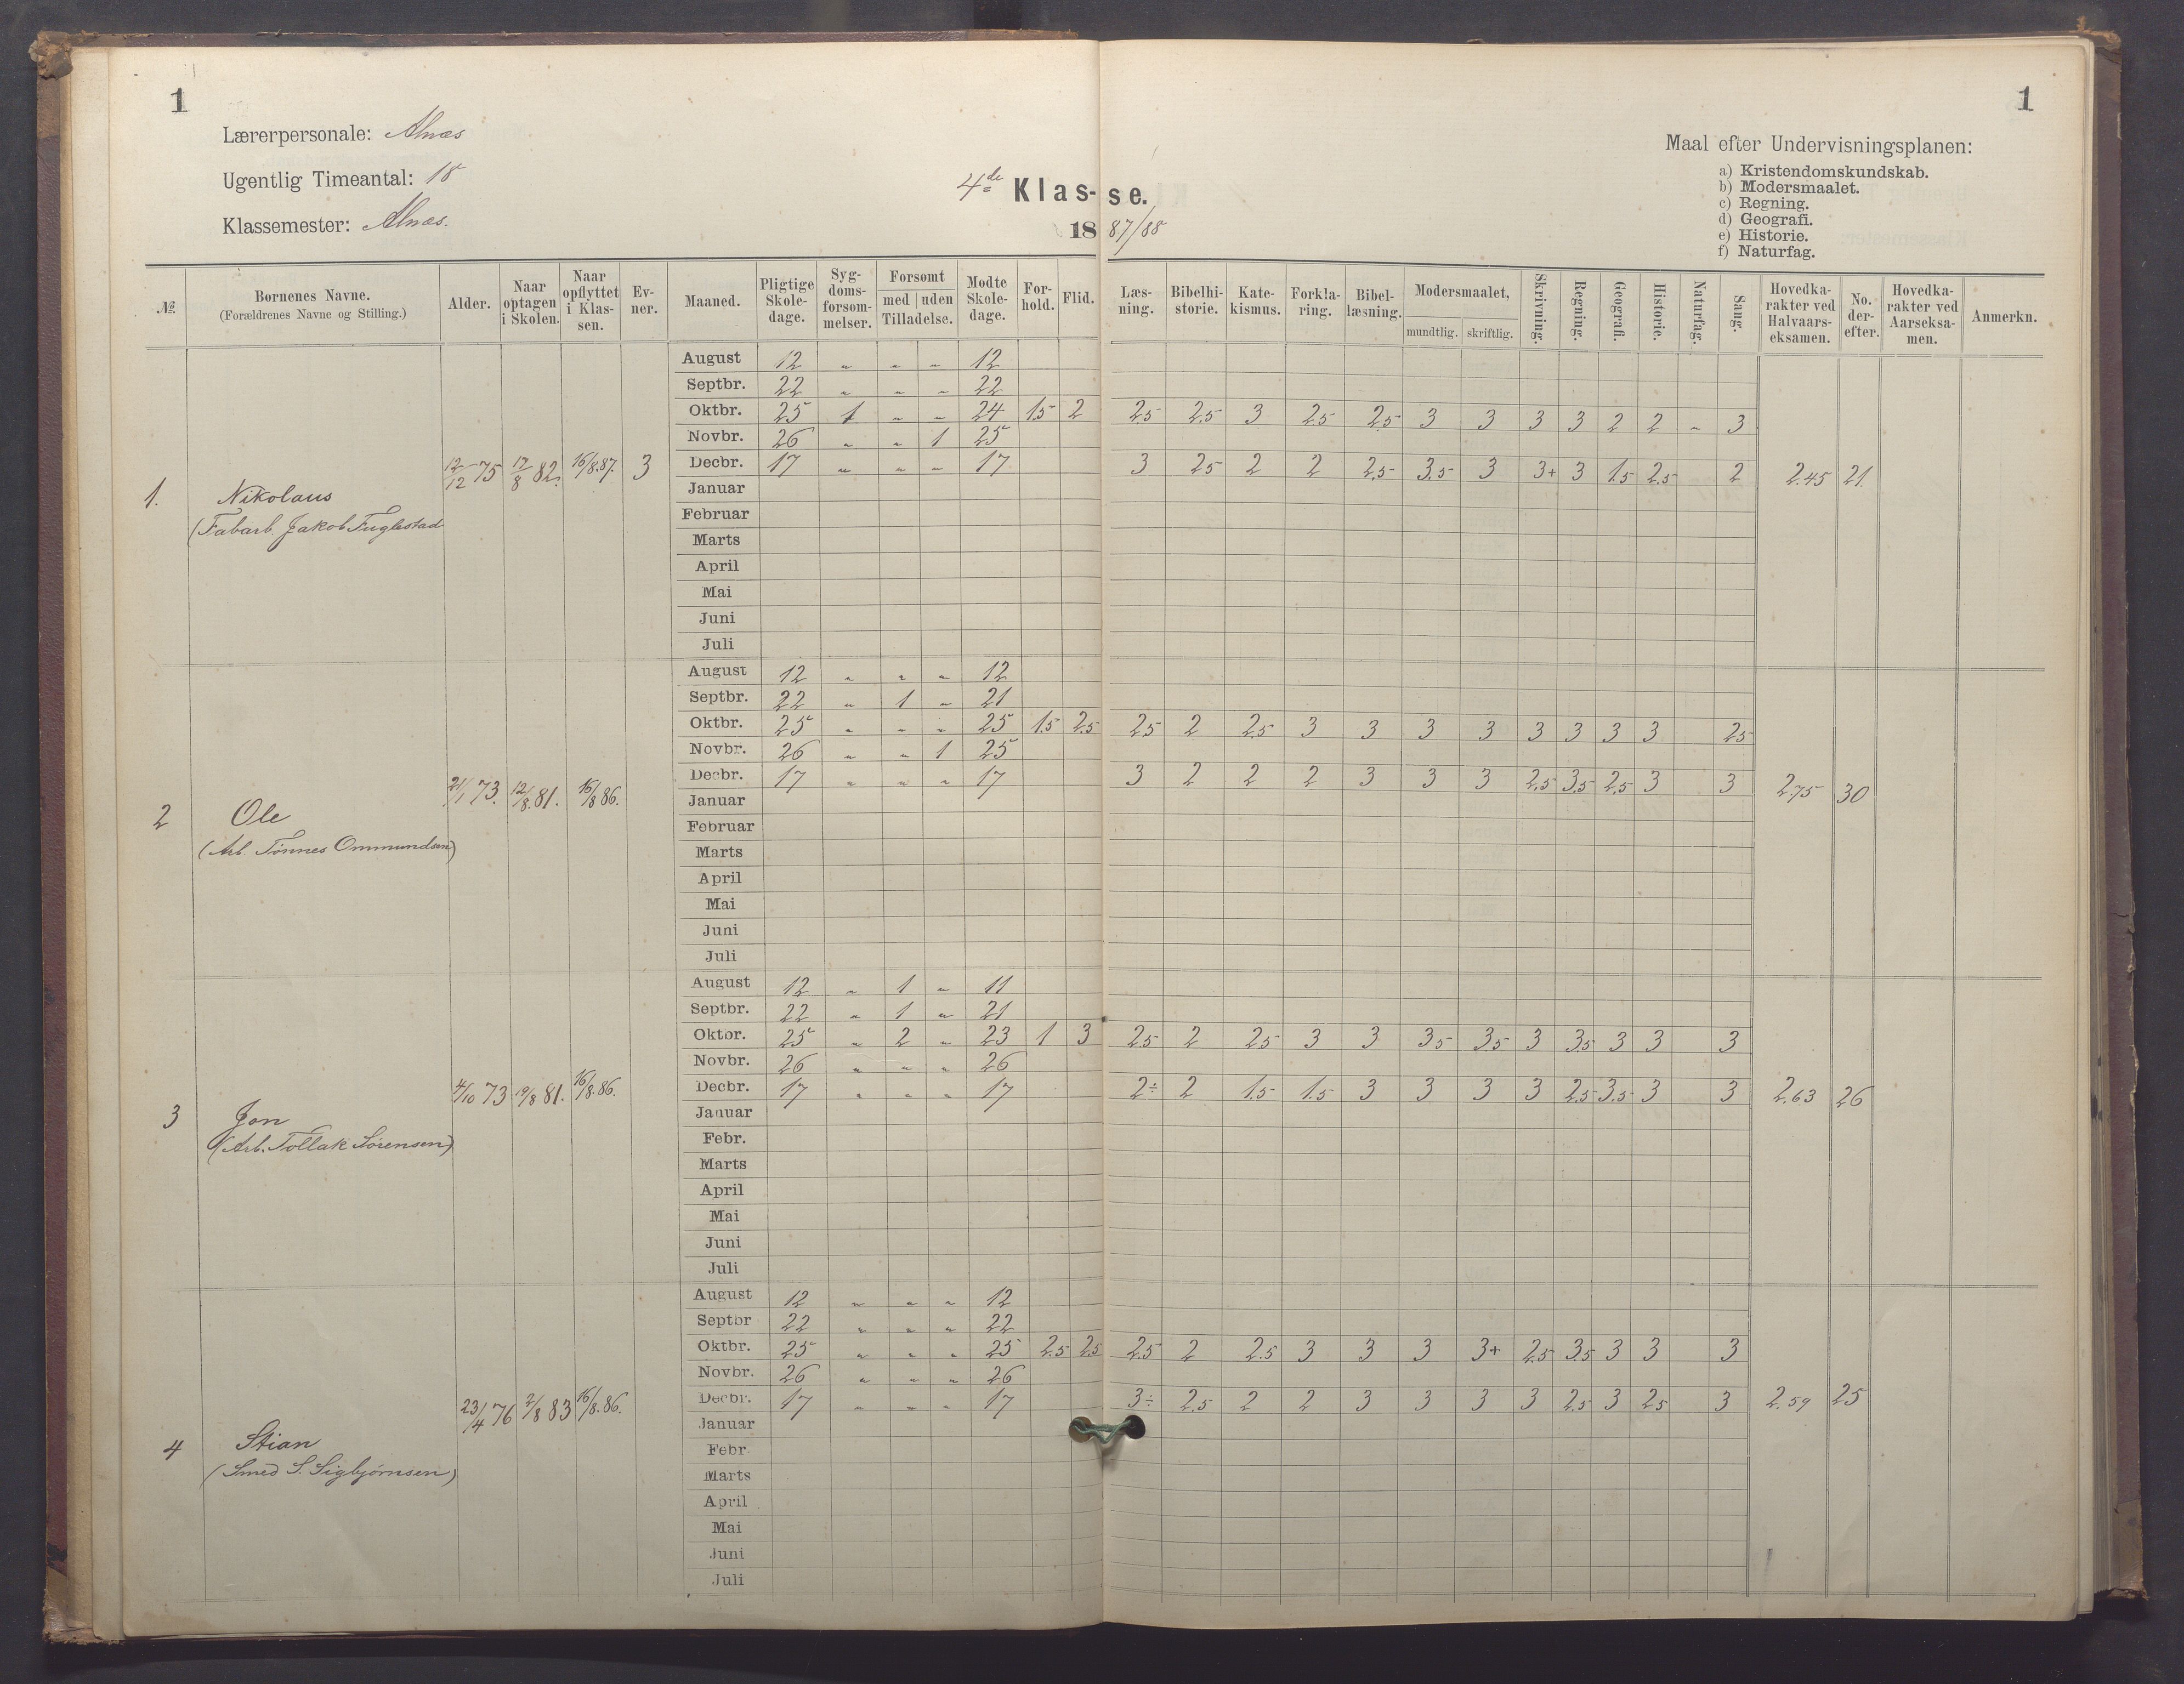 1
1
Lærerpersonale: Alnæs
Ugentlig Timeantal: 18
Klassemester: Alnæs.
4de Klas-se.
1887/88
Maal efter Undervisningsplanen:
a) Kristendomskundskab.
b) Modersmaalet.
c) Regning.
d) Geografi.
e) Historie.
f) Naturfag.
№ | Børnenes Navne. (Forældrenes Navne og Stilling.) | Alder. | Naar optagen i Skolen. | Naar opflyttet i Klassen. | Evner. | Maaned. | Pligtige Skoledage. | Sygdomsforsommelser. | Forsømt med uden Tilladelse. | Mødte Skoledage. | Forhold. | Flid. | Læsning. | Bibelhistorie. | Katekismus. | Forklaring. | Bibellæsning. | Modersmaalet, mundtlig. skriftlig. | Skrivning. | Regning. | Geografi. | Historie. | Naturfag. | Sang. | Hovedkarakter ved Halvaarseksamen. | No. derefter. | Hovedkarakter ved Aarseksamen. | Anmerkn.
1. Nikolaus
(Fabarb. Jakob Fuglestad
12/12 75 17/8 82. 16/8.87. 3
August 12 " " " 12
Septbr. 22 " " " 22
Oktbr. 25 1 " " 24 1.5 2 2.5 2.5 3 2.5 2.5 3 3 3 3 2 2 " 3
Novbr. 26 " " 1 25
Decbr. 17 " " " 17 3 2.5 2 2 2.5 3.5 3 3+ 3 1.5 2.5 2 2.45 21.
Januar
Februar
Marts
April
Mai
Juni
Juli
2 Ole
(Arb. Tønnes Ommundsen)
21/1 73. 12/8.81. 16/8 86.
August 12 " " " 12
Septbr. 22 " 1 " 21
Oktbr. 25 " " " 25 1.5 2.5 2.5 2 2.5 3 3 3 3 3 3 3 3 2.5
Novbr. 26 " " 1 25
Decbr. 17 " " " 17 3 2 2 2 3 3 3 2.5 3.5 2.5 3 3 2.75 30
Januar
Februar
Marts
April
Mai
Juni
Juli
3 Jon
(Arb. Tollak Sørensen)
4/10 73 19/8 81. 16/8.86.
August 12 " 1 " 11
Septbr. 22 " 1 " 21
Oktbr. 25 " 2 " 23 1 3 2.5 2 2.5 3 3 3.5 3.5 3 3.5 3 3 3
Novbr. 26 " " " 26
Decbr. 17 " " " 17 2÷ 2 1.5 1.5 3 3 3 3 2.5 3.5 3 3 2.63 26
Januar
Febr.
Marts
April
Mai
Juni
Juli
4 Stian
(Smed S. Sigbjørnsen)
23/4 76 2/8 83 16/8.86.
August 12 " " " 12
Septbr 22 " " " 22
Oktbr. 25 " " " 25 2.5 2.5 2.5 2 2.5 3 3 3 3+ 2.5 3.5 3 3 3
Novbr. 26 " " " 26
Decbr. 17 " " " 17 3÷ 2.5 2 2 3 3 3 3 2.5 3 2.5 3 2.59 25
Januar
Febr.
Marts
April
Mai
Juni
Juli